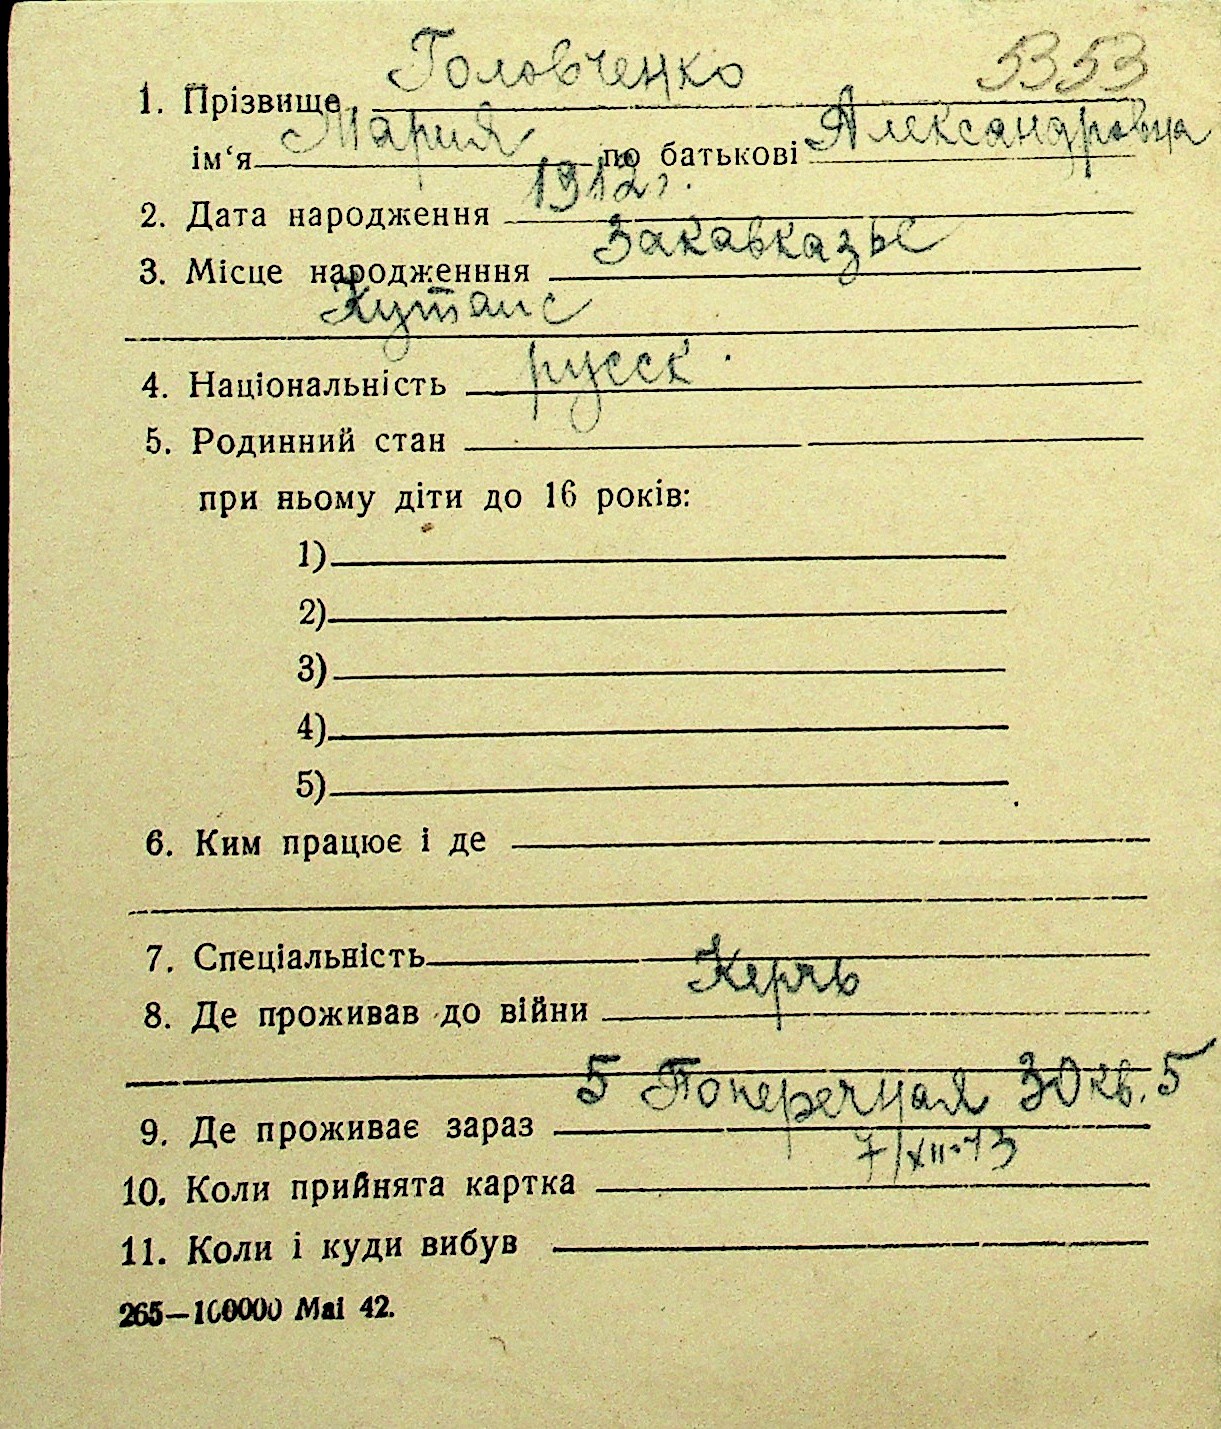 Головченко 5353
1. Прізвище
Мария Александровна
ім‘я по батькові
1912 г.
2. Дата народження
Закавказье
3. Місце народженння
Кутаис
русск.
4. Національність
5. Родинний стан
при ньому діти до 16 років:
1)
2)
3)
4)
5)
6. Ким працює і де
7. Спеціальність
Керчь
8. Де проживав до війни
5 Поперечная 30 кв. 5
9. Де проживає зараз
7/XII-43
10. Коли прийнята картка
11. Коли і куди вибув
265—100000 Mai 42.